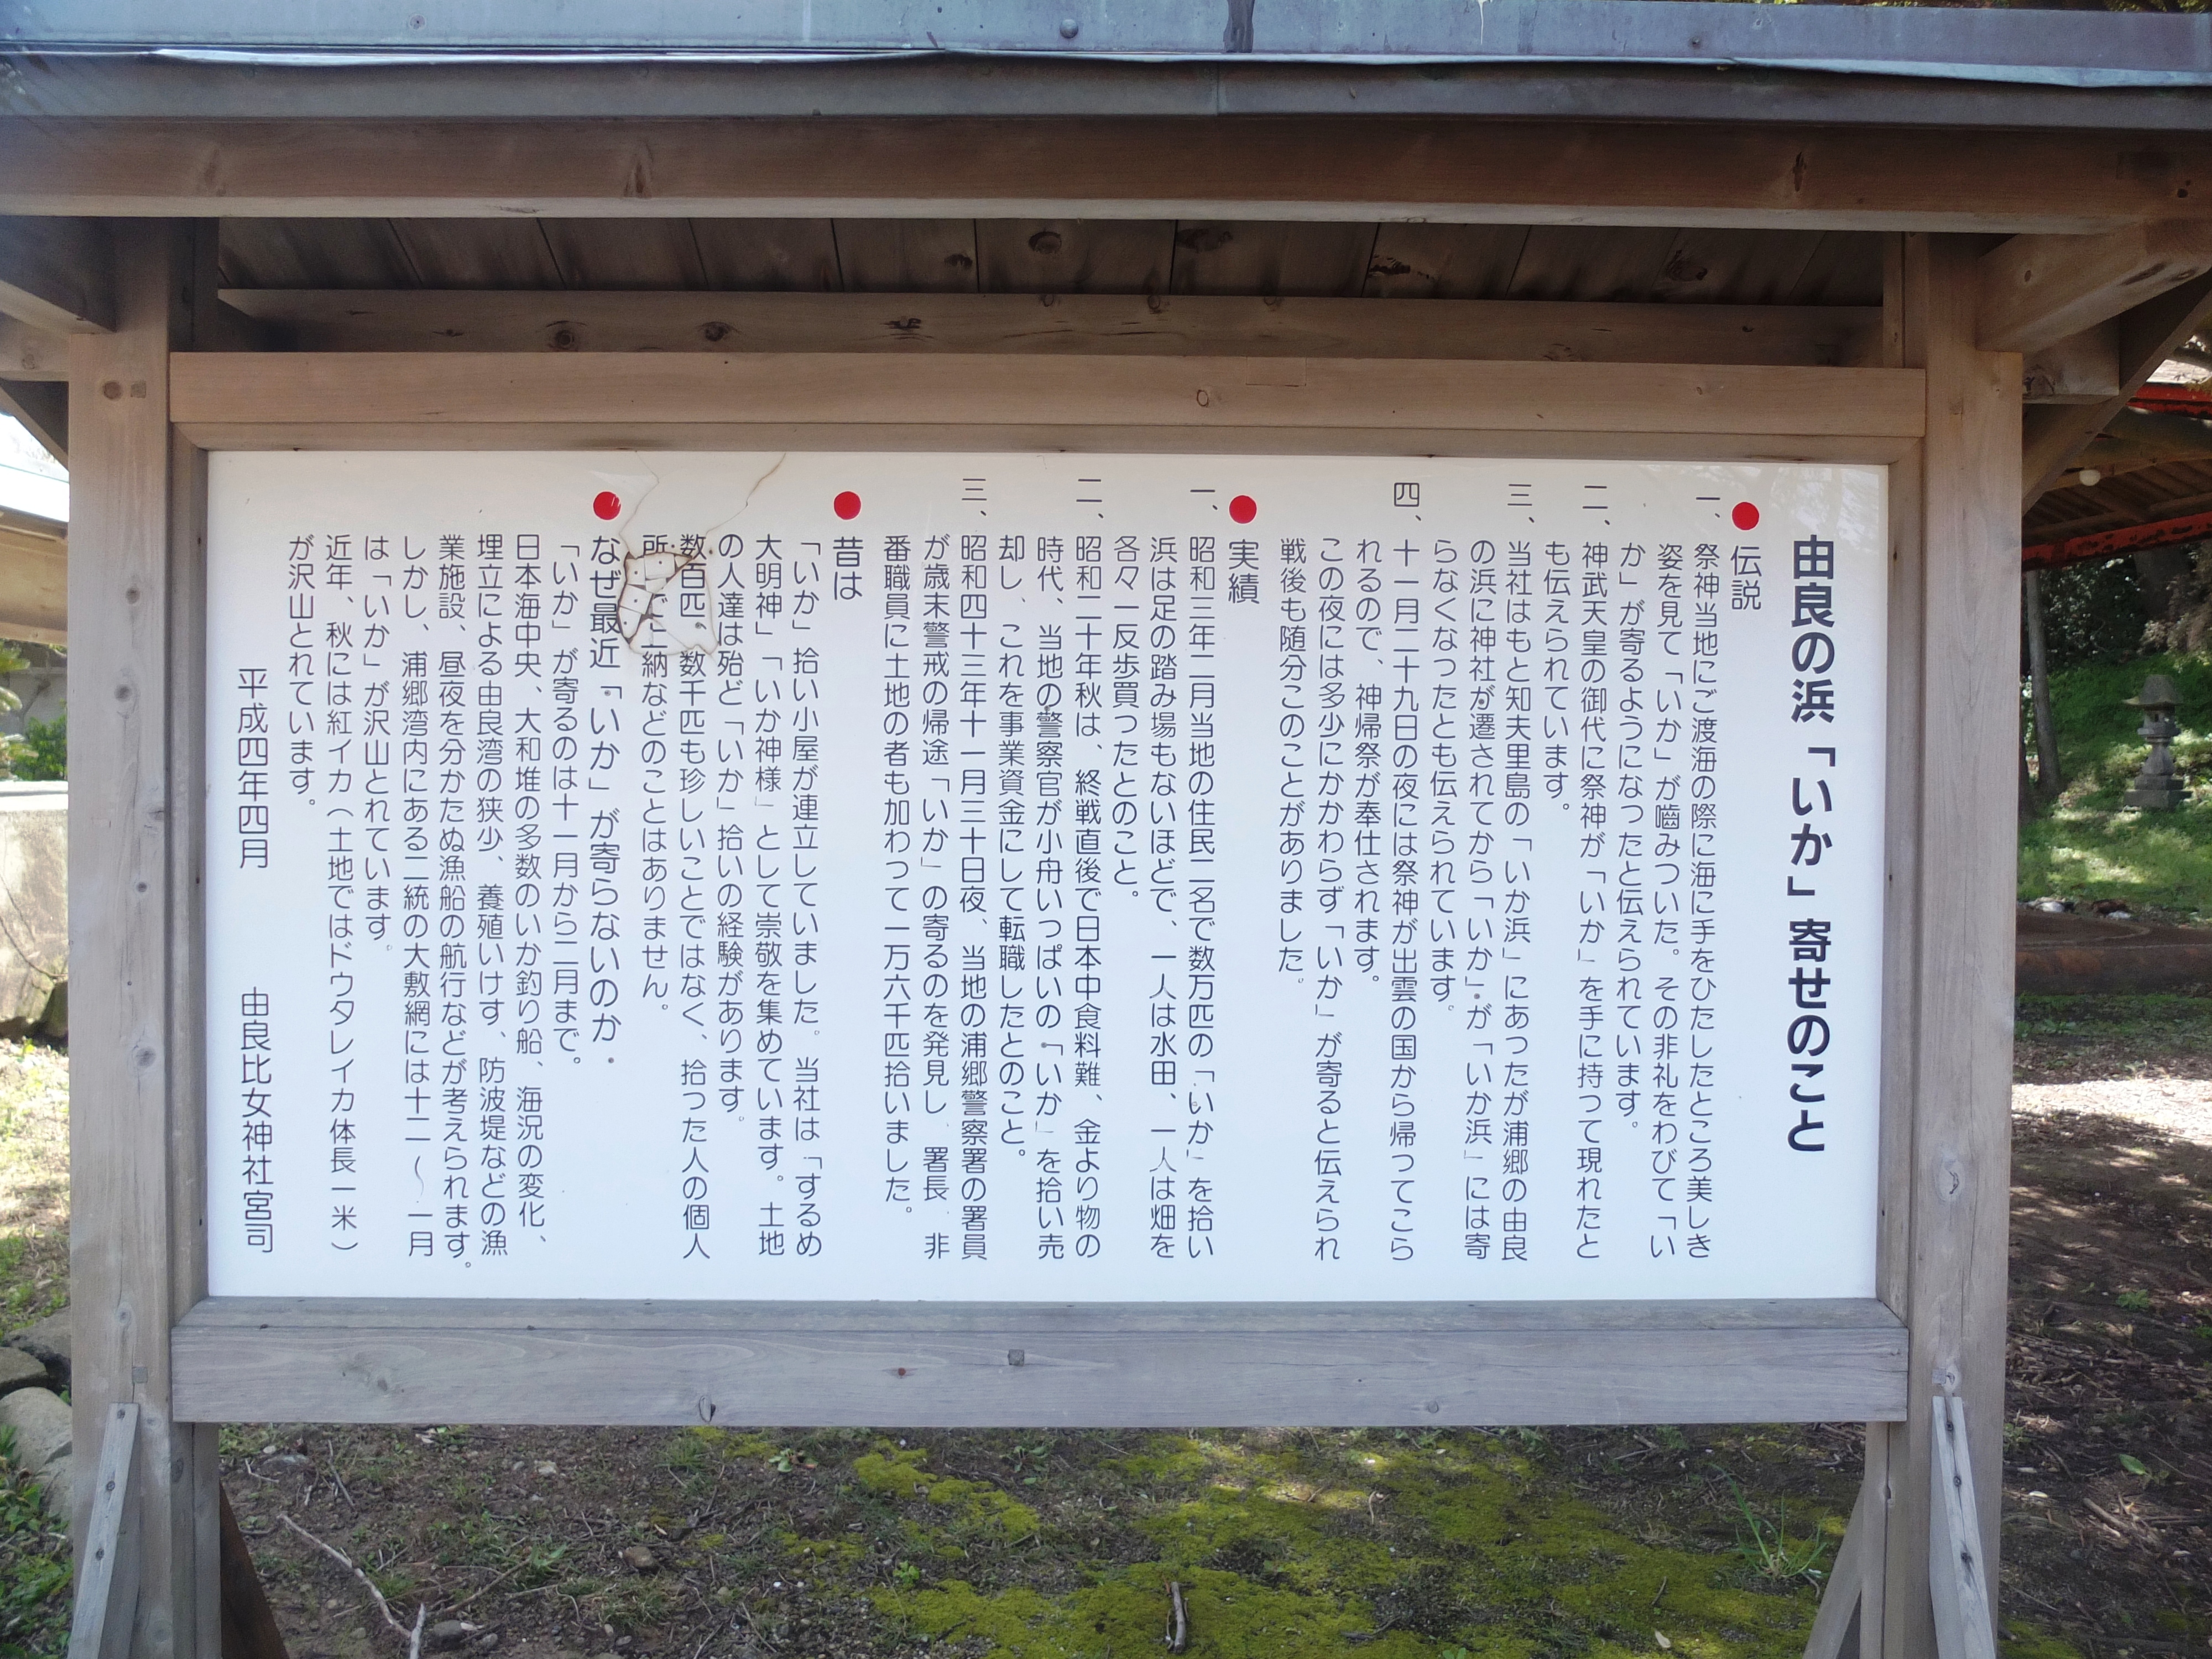 由良の浜「いか」寄せのこと
伝説
一、祭神当地にご渡海の際に海に手をひたしたところ美しき
姿を見て「いか」が嚙みついた。その非礼をわびて「い
か」が寄るようになったと伝えられています。
二、神武天皇の御代に祭神が「いか」を手に持って現れたと
も伝えられています。
三、当社はもと知夫里島の「いか浜」にあったが浦郷の由良
の浜に神社が遷されてから「いか」が「いか浜」には寄
らなくなったとも伝えられています。
四、十一月二十九日の夜には祭神が出雲の国から帰ってこら
れるので、神帰祭が奉仕されます。
この夜には多少にかかわらず「いか」が寄ると伝えられ
戦後も随分このことがありました。
実績
一、昭和三年二月当地の住民二名で数万匹の「いか」を拾い
浜は足の踏み場もないほどで、一人は水田、一人は畑を
各々一反歩買ったとのこと。
二、昭和二十年秋は、終戦直後で日本中食料難、金より物の
時代、当地の警察官が小舟いっぱいの「いか」を拾い売
却し、これを事業資金にして転職したとのこと。
三、昭和四十三年十一月三十日夜、当地の浦郷警察署の署員
が歳末警戒の帰途「いか」の寄るのを発見し、署長、非
番職員に土地の者も加わって一万六千匹拾いました。
昔は
「いか」拾い小屋が連立していました。当社は「するめ
大明神」「いか神様」として崇敬を集めています。土地
の人達は殆ど「いか」拾いの経験があります。
数百匹、数千匹も珍しいことではなく、拾った人の個人
所 で上納などのことはありません。
なぜ最近「いか」が寄らないのか.
「いか」が寄るのは十一月から二月まで。
日本海中央、大和堆の多数のいか釣り船、海況の変化、
埋立による由良湾の狭少、養殖いけす、防波堤などの漁
業施設、昼夜を分かたぬ漁船の航行などが考えられます。
しかし、浦郷湾内にある二統の大敷網には十二〜一月
は「いか」が沢山とれています。
近年、秋には紅イカ（土地ではドウタレイカ体長一米）
が沢山とれています。
平成四年四月 由良比女神社宮司